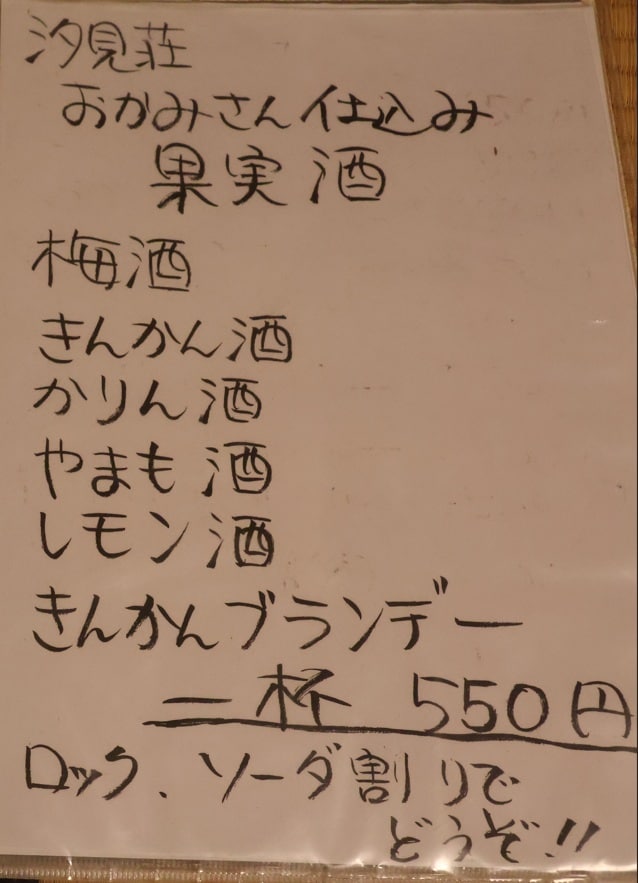 汐見荘
おかみさん仕込み
果実酒
梅酒
きんかん酒
かりん酒
やまも酒
レモン酒
きんかんブランデー
一杯 550円
ロック、ソーダ割りで
どうぞ!!